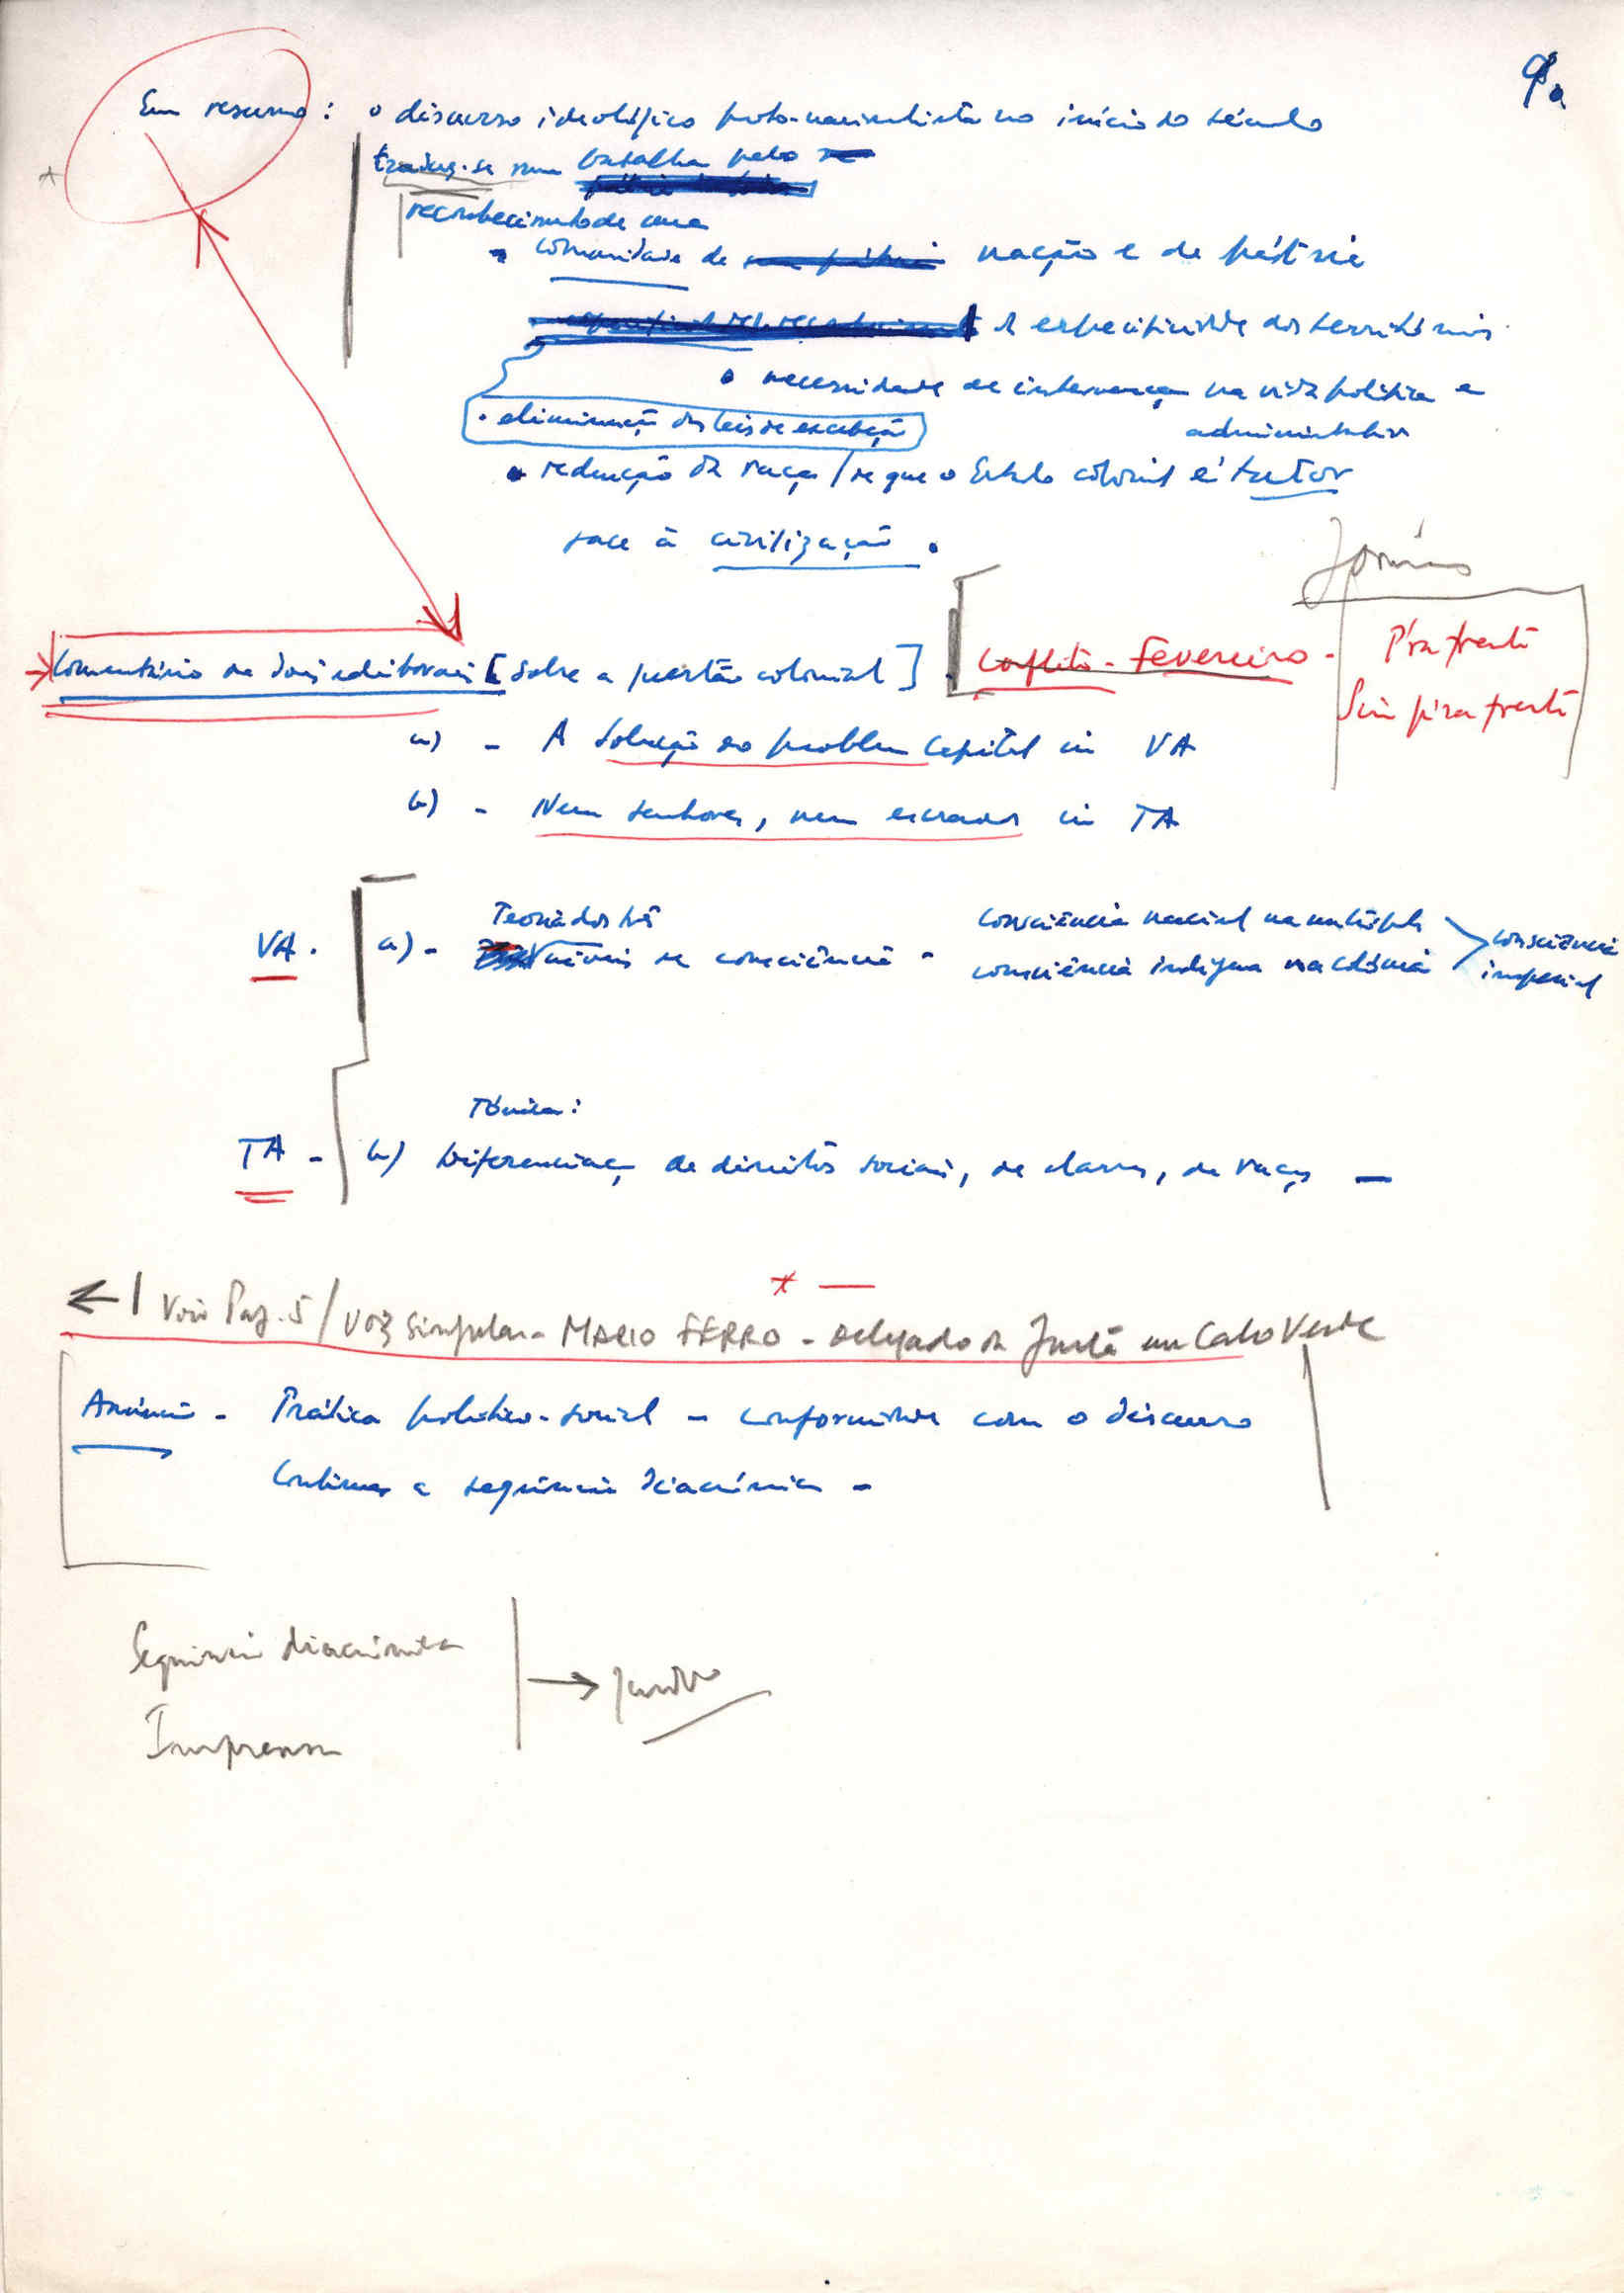 9a
Em resumo: o discurso ideológico proto-nacionalista no início do século
traduz-se numa batalha pelo
reconhecimento de uma
• comunidade de nação e de pátria
especificidade dos territórios
• necessidade de intervenção na vida política e
administrativa
• eliminação das leis de excepção
• redenção da raça / de que o Estado colonial é tutor
face à civilização.
Jornais
Comentário de dois editoriais [sobre a questão colonial] Conflito - Fevereiro -
P'ra frente
Sem p'ra frente
a) - A solução do problema capital in VA
b) - Nem senhores, nem escravos in TA
Teoria dos três
VA. a) - níveis de consciência -
consciência nacional na metrópole
consciência indígena na colónia
consciência
imperial
Tónica:
TA - b) Diferenciação de direitos sociais, de classes, de raças —
← | Voir Pag. 5 / Voz singular - MARIO FERRO - delegado da Junta em Cabo Verde
Anúncio - Prática político-social - conformidade com o discurso
Continuar a sequência diacrónica -
Sequência diacrónica
Imprensa
→